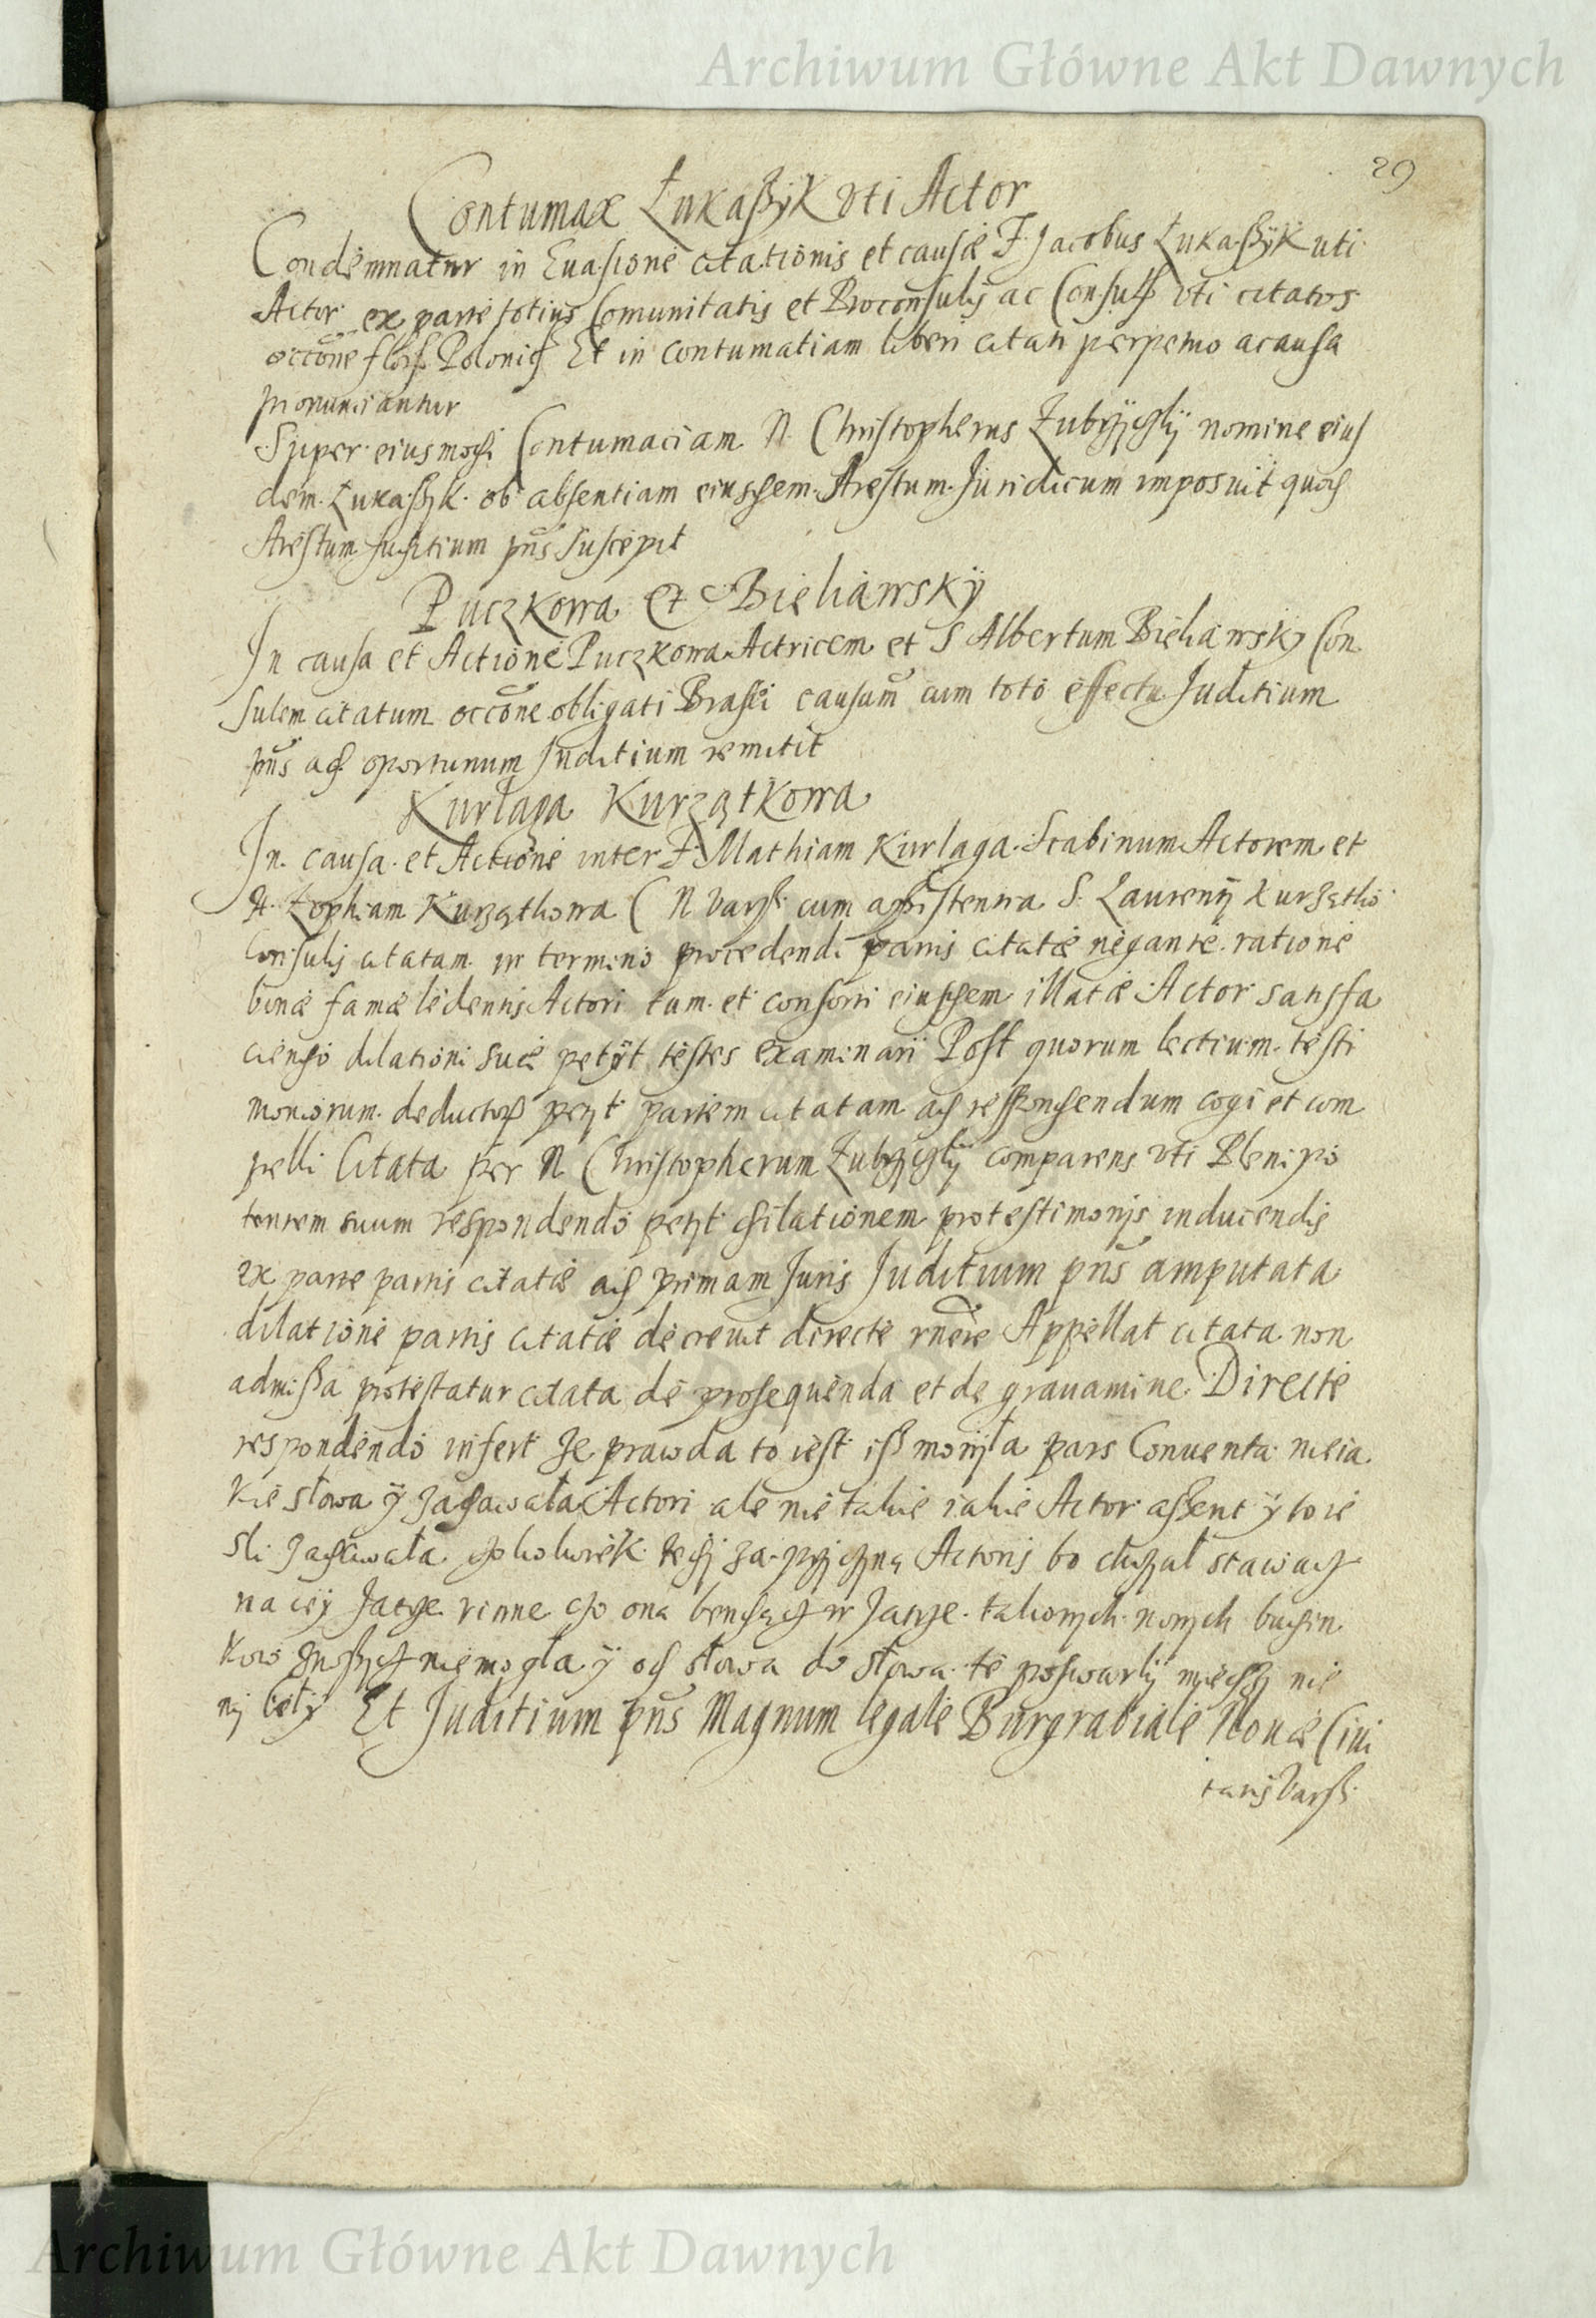 Archiwum Główne Akt Dawnych
29
Contumax Łukaszyk vti Actor
Condemnatur in Euasione citationis et causæ F. Jacobus Łukaszÿk uti
Actor ex parte totius Comunitatis et Proconsulis ac Consulū vti citatos
occōne floň. Polonic. Et in contumatiam liberi citati perpetuo a causa
pronunciantur
Super eiusmodi Contumaciam N. Christopherus nomine eius
dem Łukaszyk ob absentiam eiusdem Arestum Juridicum imposuit quod
Arestum Juditium pn̄s suscepit
Puczkowa Et Bieliawskÿ
In causa et Actione Puczkowa Actricem et S Albertum Bieliawsky Con
sulem citatum occōne obligati Brasei causam cum toto effectu Juditium
pn̄s ad oportunum Juditium remitit
Kurlaga Kurzątkowa
In causa et Actione inter F. Mathiam Kurlaga Scabinum Actorem et
H. Zophiam Kurzątkowa C N Varss. cum assistentia S. Laurenÿ Kurzątko
Consulis citatam in termino procedendi partis citatæ negante ratione
bonæ famæ ledentis Actori tam et consorti eiusdem illatæ Actor satisfa
ciendo dilationi suæ petÿt testes examinari Post quorum lectium testi
moniorum deductorū petyt partem citatam ad respondendum cogi et com
pelli Citata per N Christopherum comparens vti Plenipo
tentem suum respondendo petÿt dilationem pro testimonijs inducendis
ex parte partis citatæ ad primam Juris Juditium pn̄s amputata
dilatione partis citatæ decreuit directe rn̄dere Appellat citata non
admissa protestatur citata de prosequenda et de grauamine Directe
respondendo infert Ze prawda to iest isz mowyła pars Conuenta nieia
kie słowa ÿ zadawała Actori ale nie takie iakie Actor asserit ÿ to ie
sli zadawała czokolwiek tedj za przyczyną Actoris bo chczał stawacz
na ieÿ Jatcze rinne czo ona bendącz w Jatcze takowych nowych budin
kow znosycz niemogła ÿ od słowa do słowa te poswarky miedzy nie
nÿ belÿ Et Juditium pn̄s Magnum legale Burgrabiale Nouæ Ciui
tatis Varss.
Archiwum Główne Akt Dawnych